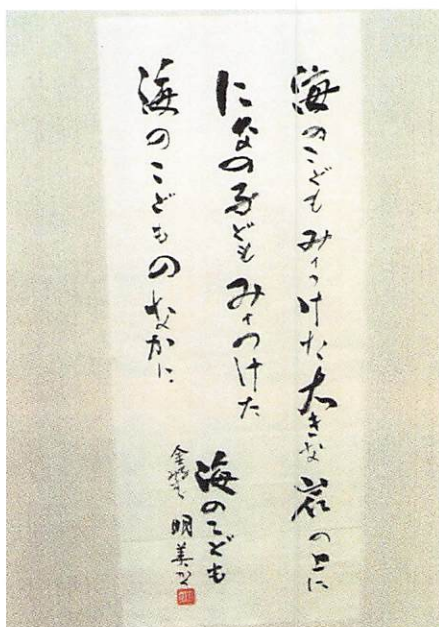 海のこどもみィつけた大きな岩の上に
になの子どもみィつけた
海のこどものなかに
海のこども
金子みすゞ 明美